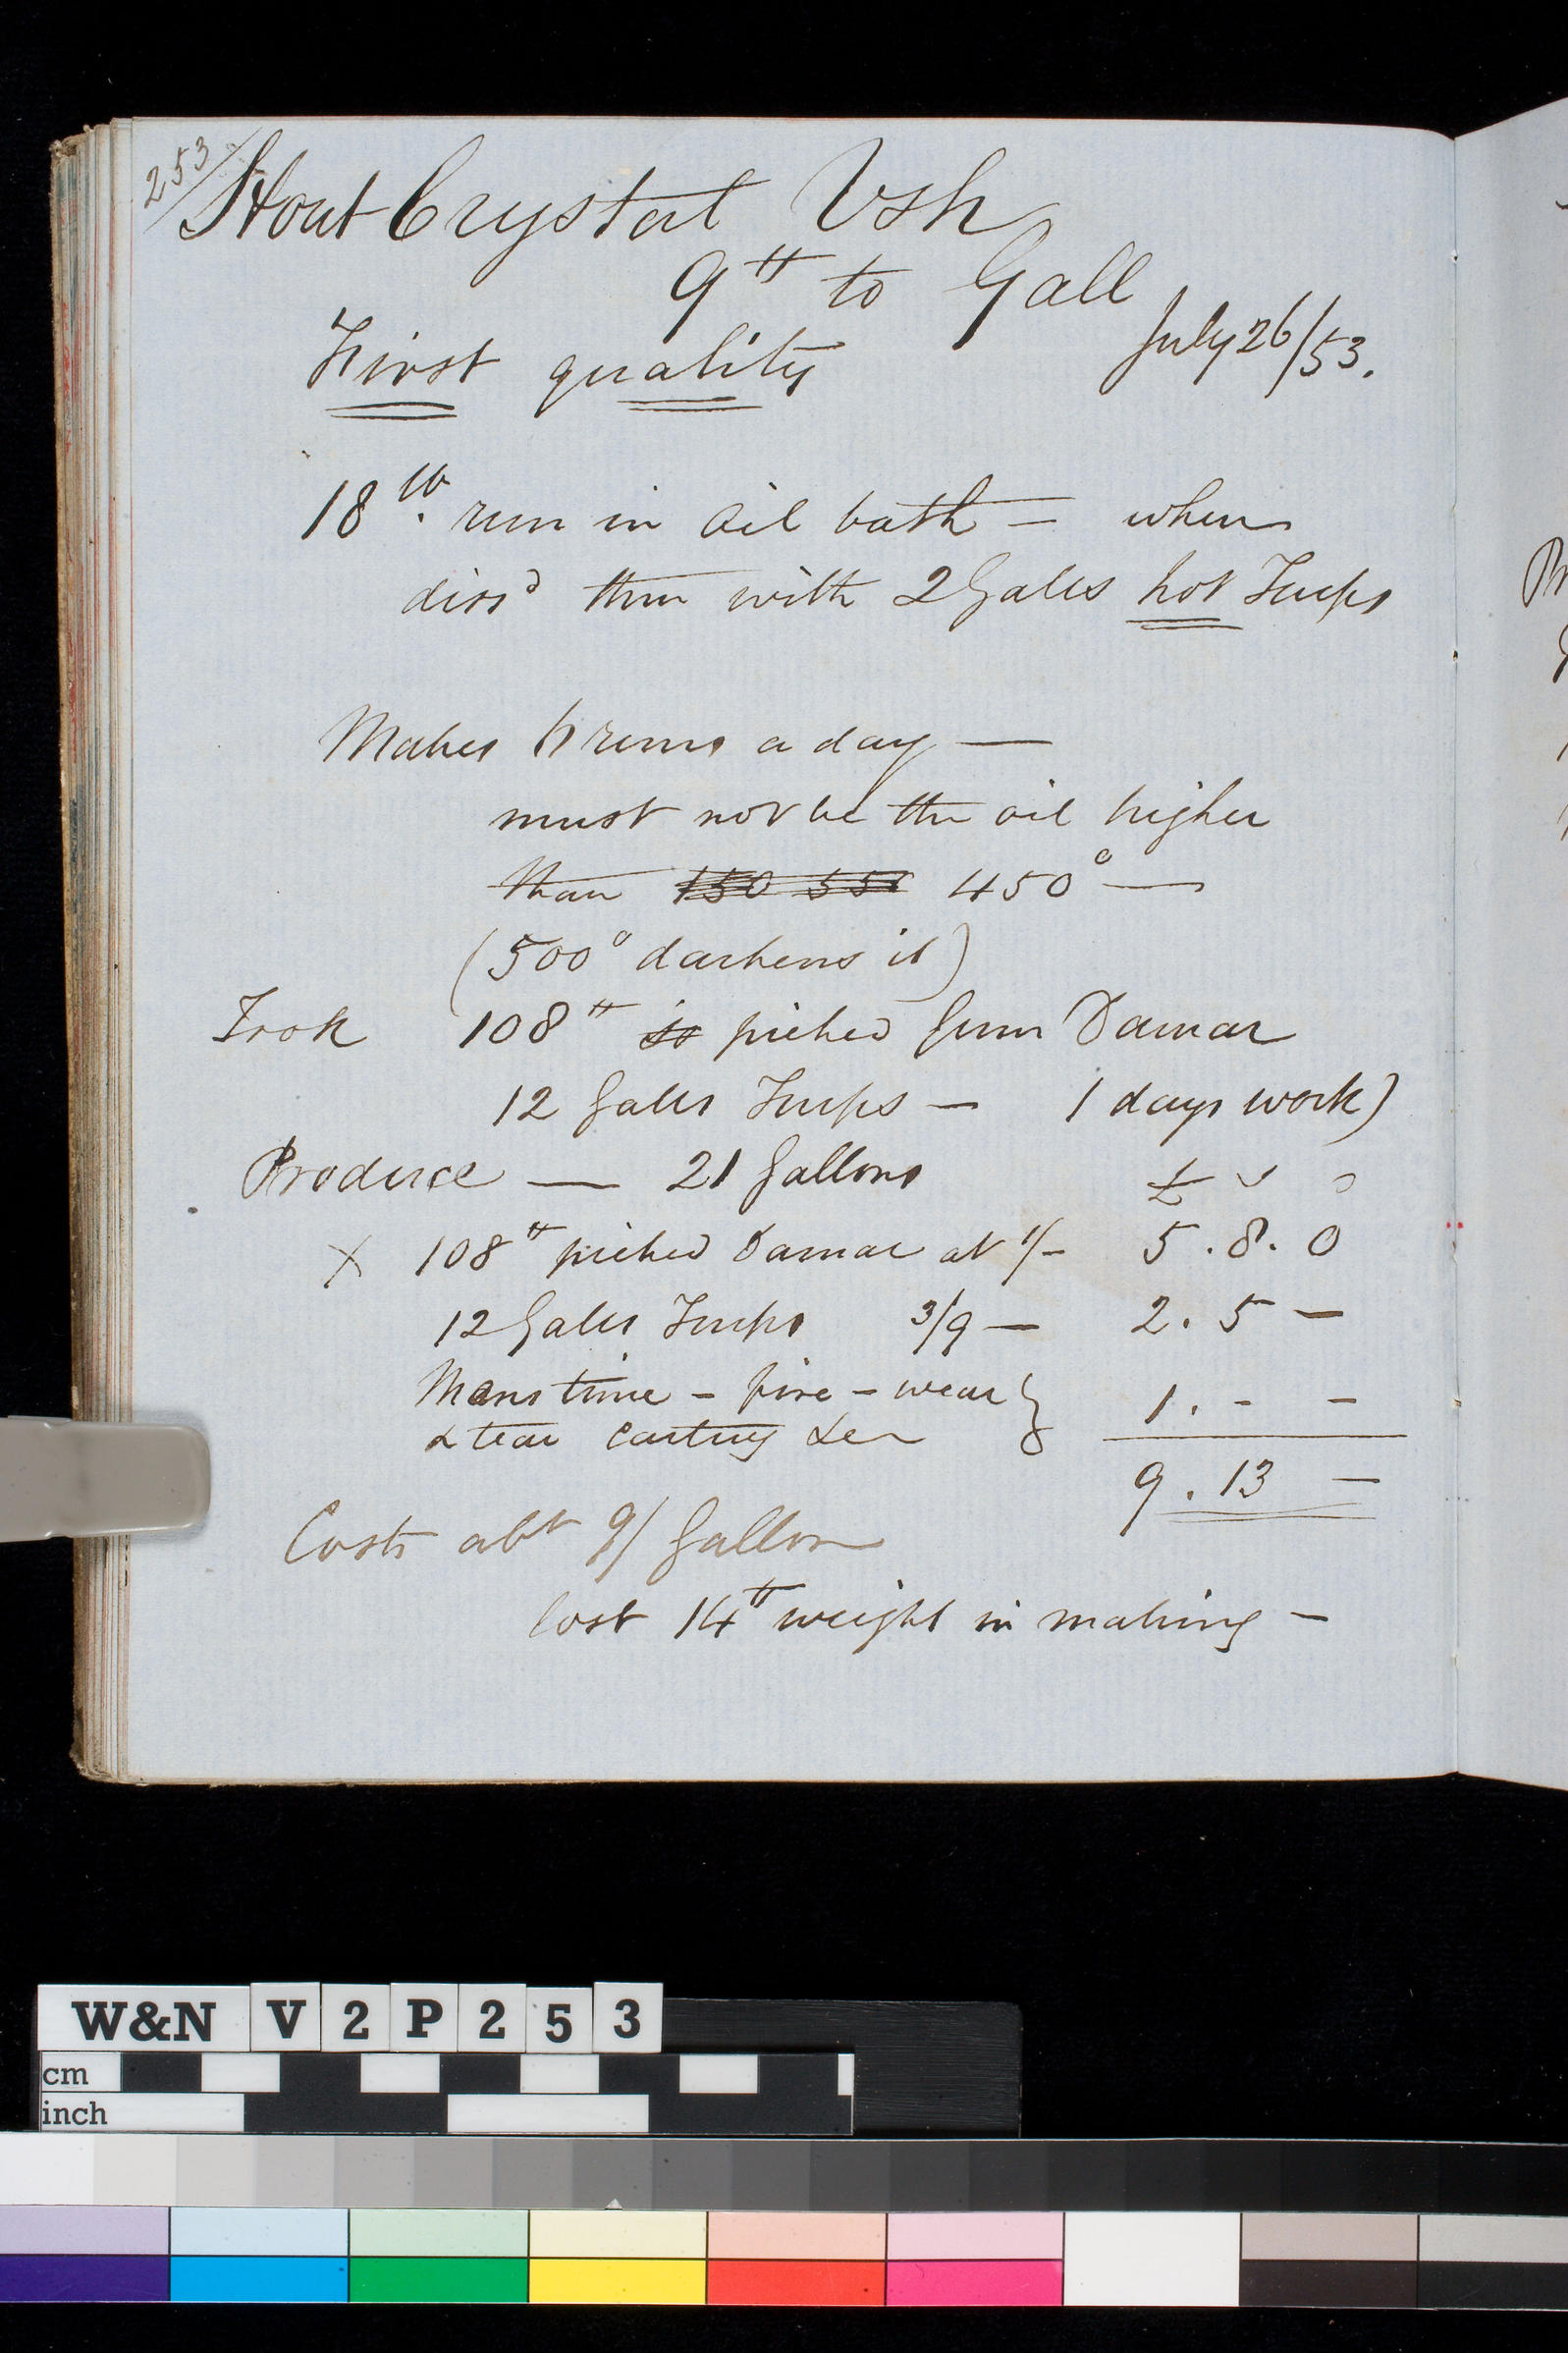 253/
Stout Crystal Vsh
9 lb to Gall
July 26/53.
First quality
18 lb. run in oil bath — when
diss'd thin with 2 Galls hot Turps
Makes 6 runs a day —
must not be the oil higher
than 150 550 450° —
(500° darkens it)
Took 108 lb picked Gum Damar
12 Galls Turps — 1 days work)
Produce — 21 Gallons £ s d
X 108 lb picked Damar at 1/- 5.8.0
12 Galls Turps 3/9 — 2.5 —
Mans time — fire — wear } 1. - -
& tear casting &c
9.13 —
Costs abt 9/ Gallon
lost 14 lb weight in making —
W&N V 2 P 2 5 3
cm
inch